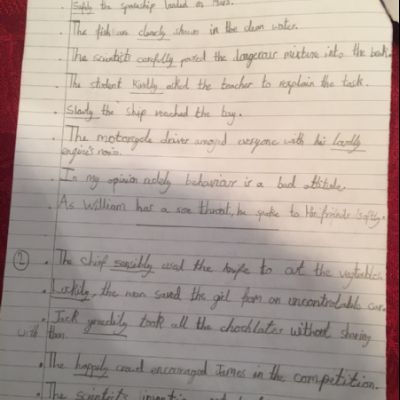 Safely the spaceship landed on Mars.
. The fish are clearly shown in the clean water.
. The scientist carefully poured the dangerous mixture into the
. The student kindly asked the teacher to explain the task.
. Slowly the ship reached the bay.
. The motorcycle driver everyone with his loudly
engine's
. In my opinion behaviour is a bad attitude.
. As William has a sore throat, he spoke to his friends softly.
② . The chief sensibly used the knife to cut the vegetables.
. Luckily, the man saved the girl from an uncontrolable car.
. Jack greedily took all the chochlates without sharing
with
. The happily crowd encouraged James in the competition.
. The scientists